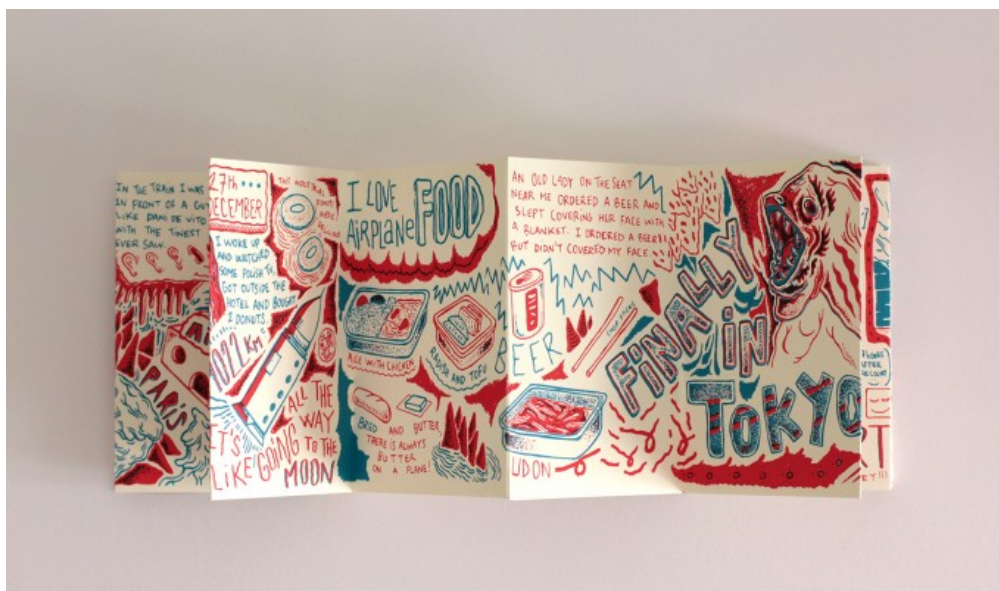 IN THE TRAIN I WAS
IN FRONT OF A
LIKE DANI DE VITO
WITH THE TINEST
EVER SAW.
PARIS
27th
DECEMBER
I WOKE UP
AND WATCHED
SOME POLISH TV,
GOT OUTSIDE THE
HOTEL AND BOUGHT
2 DONUTS.
THIS
DONUTS
WERE
Km
IT'S
LIKE GOING
ALL THE
WAY
TO THE
MOON
I LOVE
AIRPLANE FOOD
RICE WITH CHICKEN
AND TOFU
BRED AND BUTTER
THERE IS ALWAYS
BUTTER
ON A PLANE!
AN OLD LADY ON THE SEAT
NEAR ME ORDERED A BEER AND
SLEPT COVERING HER FACE WITH
A BLANKET. I ORDERED A BEER
BUT DIDN'T COVERED MY FACE
BEER
CHOP STICKS
UDON
FINALLY
IN
TOKYO